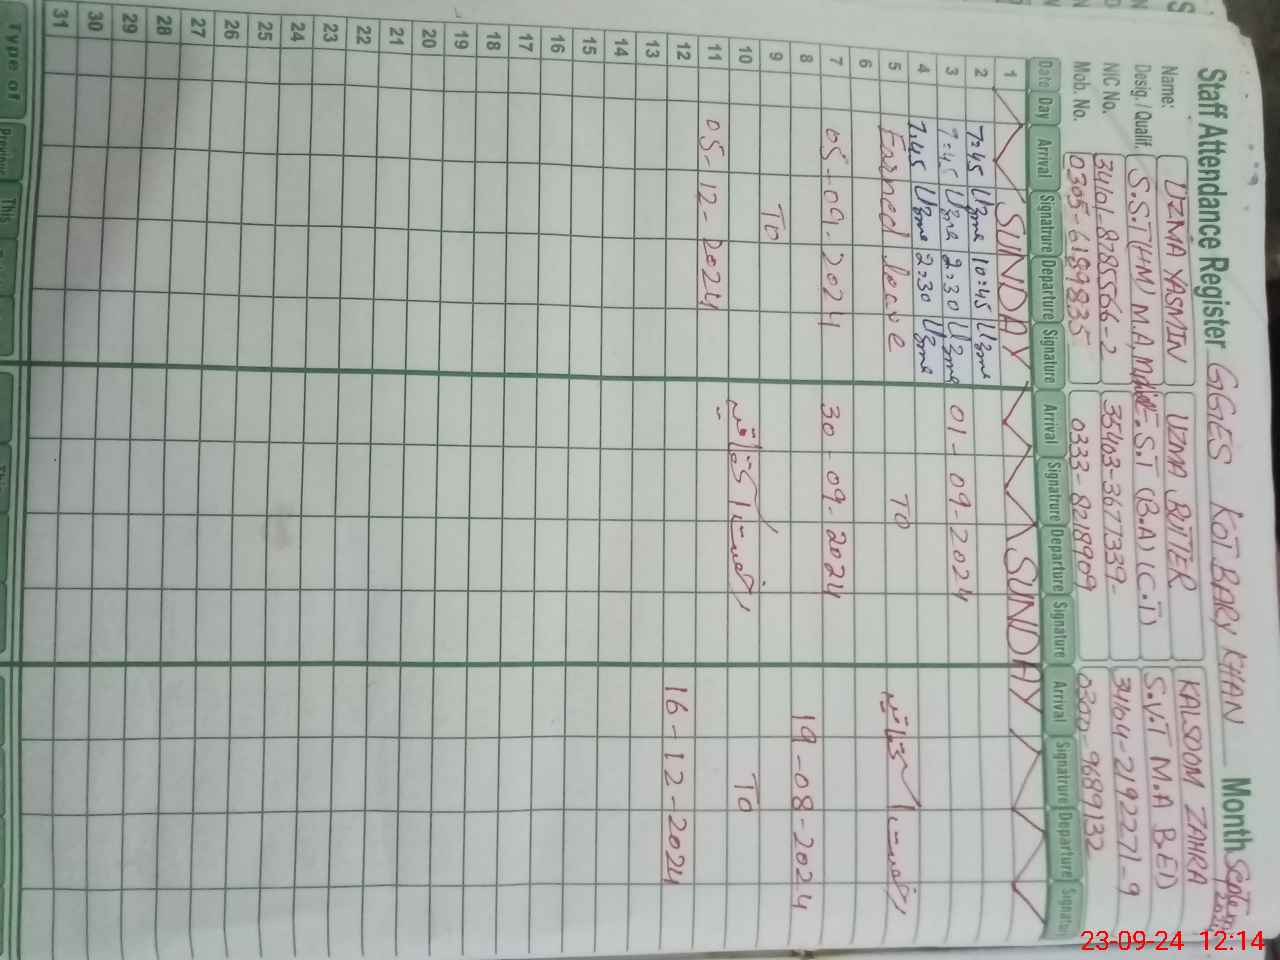 Staff Attendance Register GGIES KOT BARY KHAN Month Septem
Name: UZMA YASMIN UZMA BUTTER KALSOOM ZAHRA
Desig. / Qualif. S.ST(HM) M.A, E.S.T (B.A) (C.T) S.V.T M.A B.ED
NIC No. 34101-8785566-2 35403-3677339- 34104-2192271-9
Mob. No. 0305-6189835 0333-8218909 0300-9689132
Date Day Arrival Signatrure Departure Signature Arrival Signatrure Departure Signature Arrival Signatrure Departure Signatu
1 SUNDAY SUNDAY
2 7:45 Uzma 10:45 Uzma
3 7:45 Uzma 2:30 Uzma 01-09-2024
4 7.45 Uzma 2:30 Uzma
5 Earned leave TO
6
7 05-09-2024 30-09-2024
8 19-08-2024
9 TO
10 TO
11 05-12-2024
12 16-12-2024
13
14
15
16
17
18
19
20
21
22
23
24
25
26
27
28
29
30
31
Type of Previous This
23-09-24 12:14